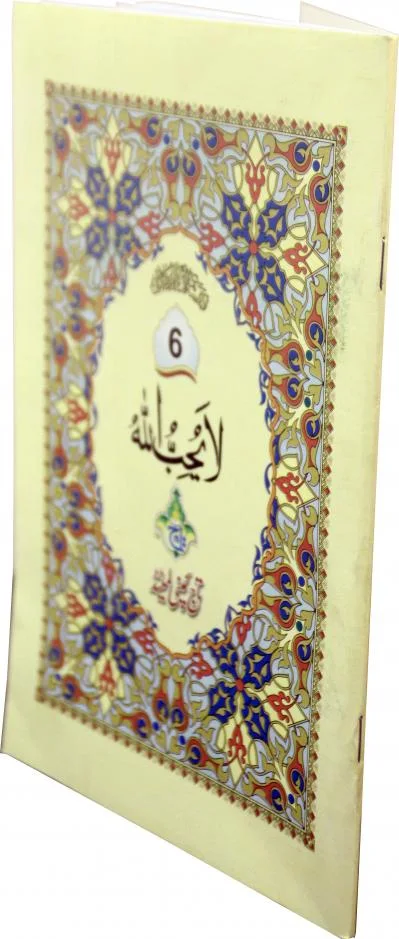 6
لا يُحِبُّ اللهُ
تاج كمپنی لمیٹڈ